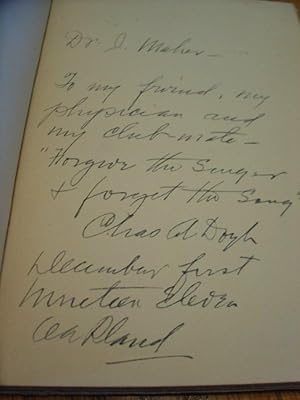 Dr. J. Maher —
To my friend, my
physician and
my club-mate —
"Forgive the Singer
& forget the Song"
Chas A Doyle
December first
Nineteen Eleven
Oakland